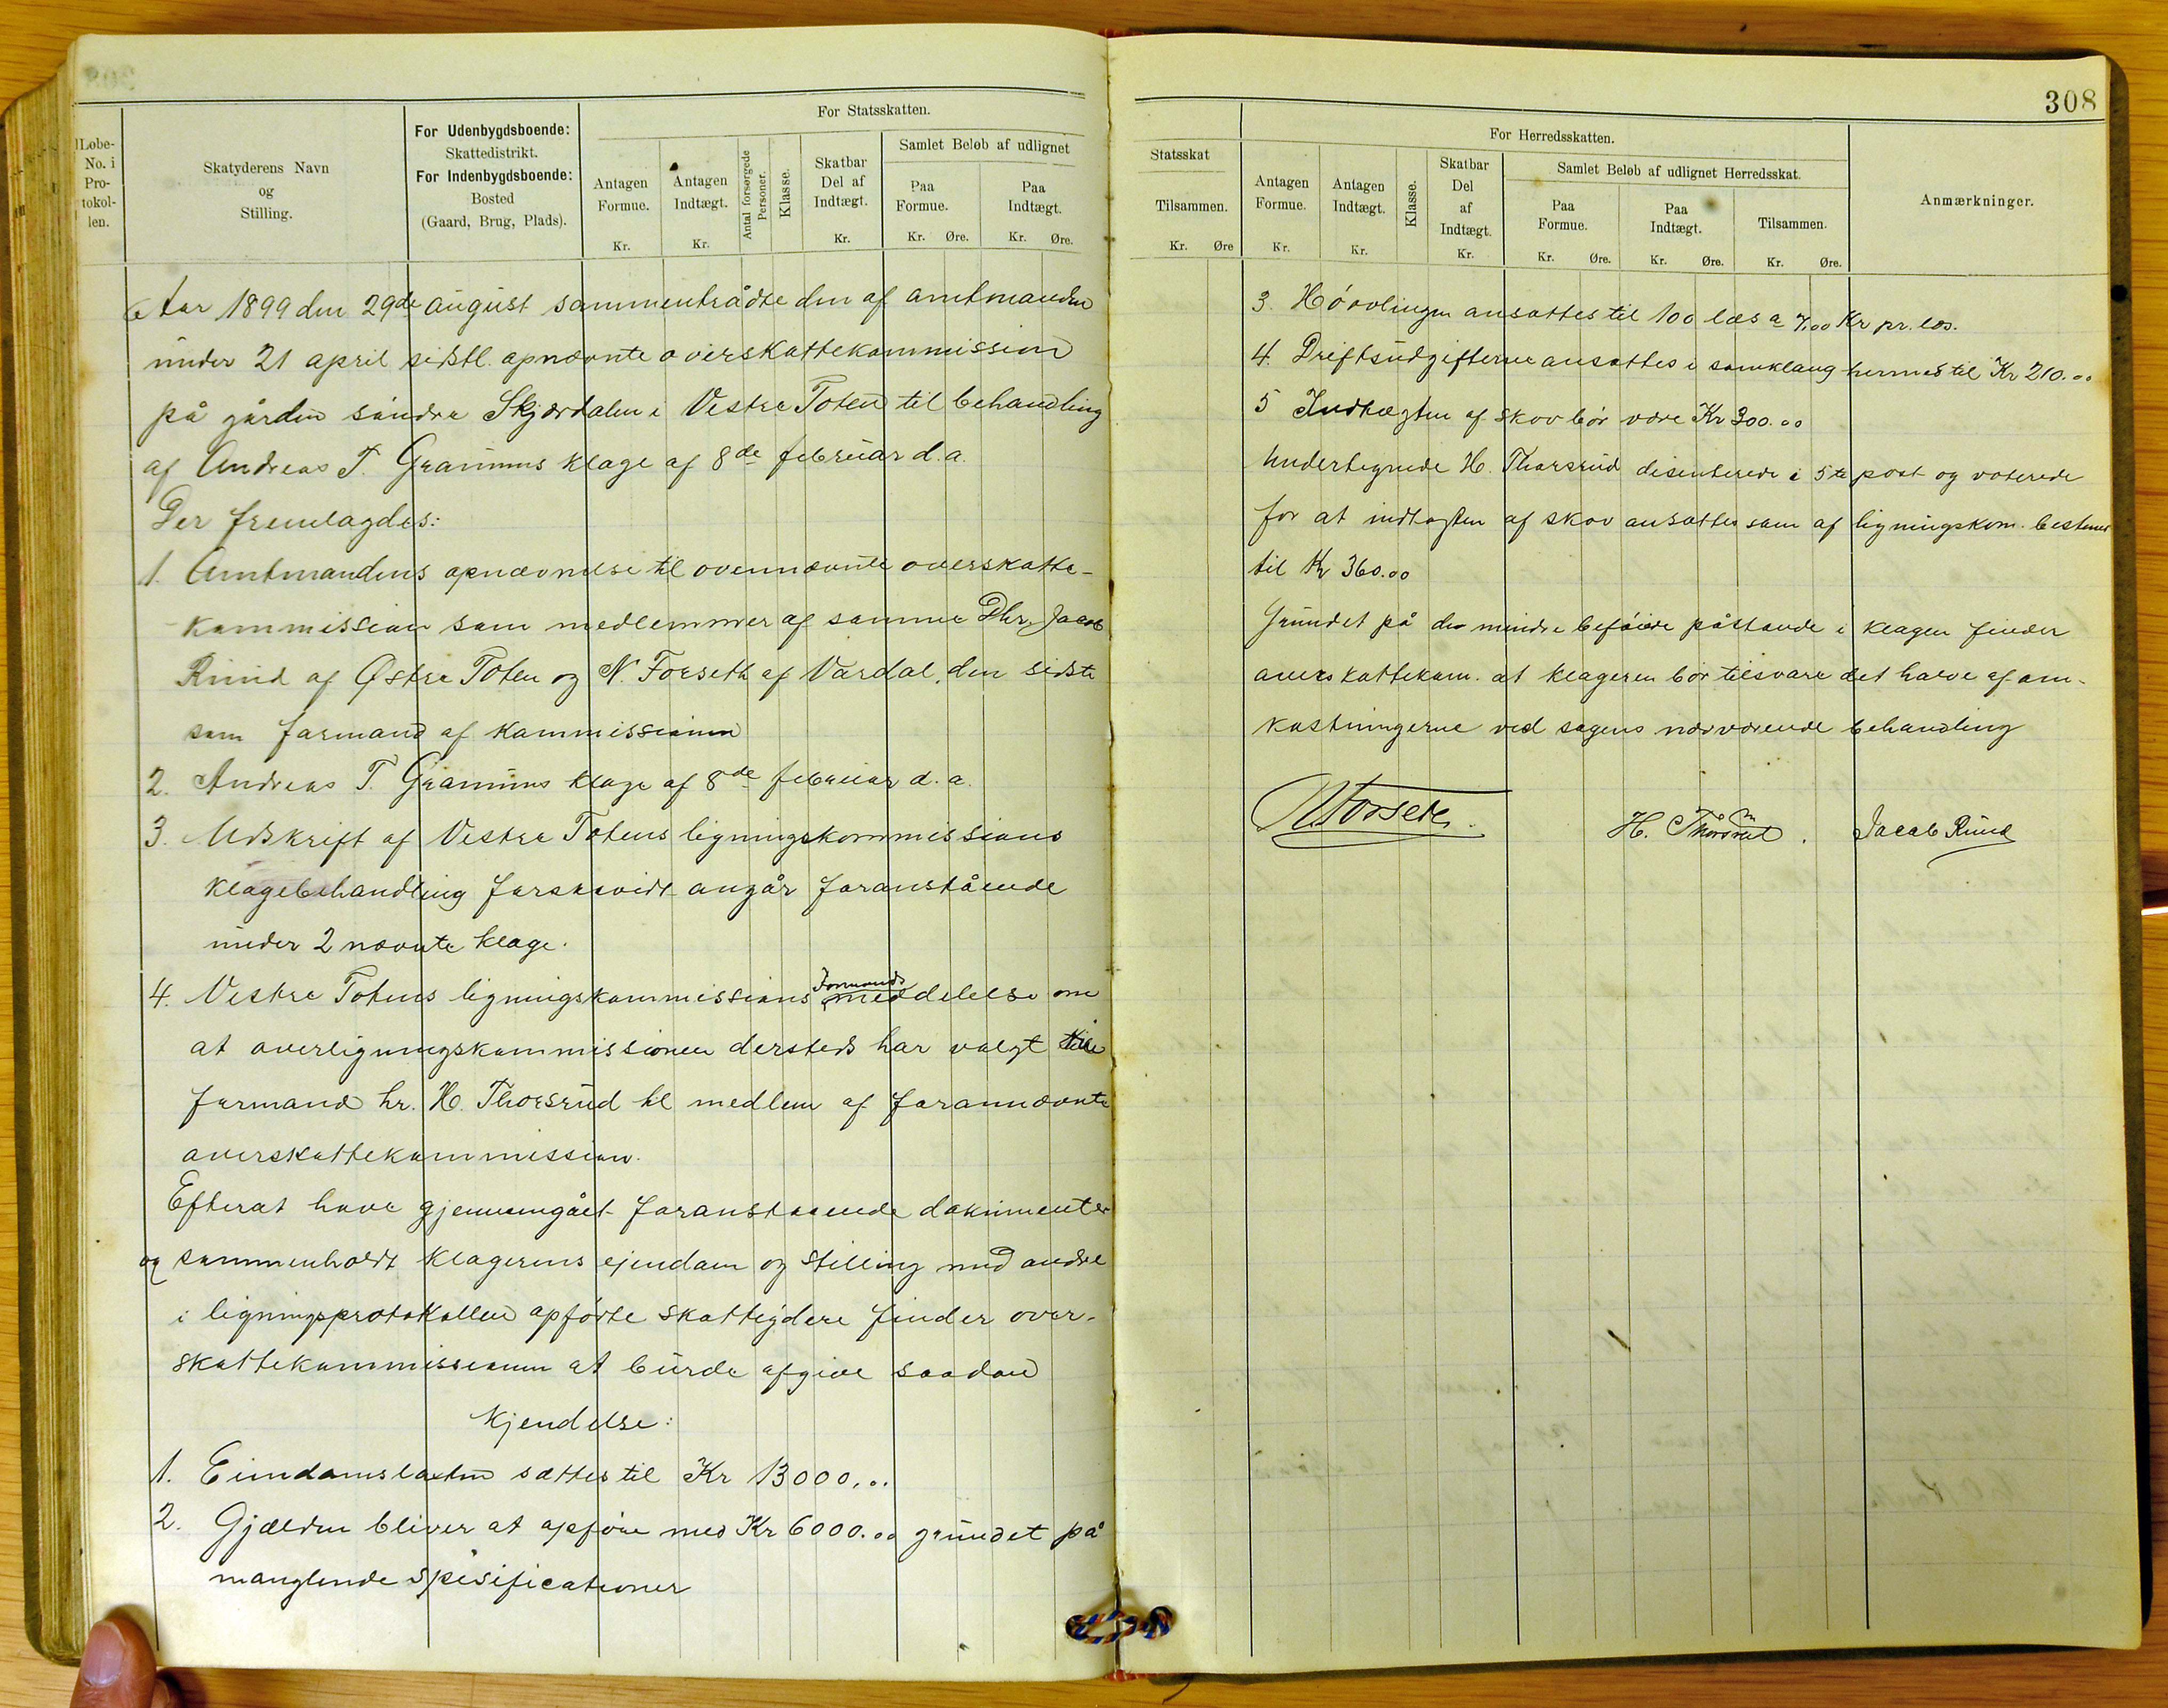 Løbe-
No. i
Pro-
tokol-
len.
Skatyderens Navn
og
Stilling.
For Udenbygdsboende:
Skattedistrikt.
For Indenbygdsboende:
Bosted
(Gaard, Brug, Plads).
For Statsskatten.
Antagen
Formue.
Kr.
Antagen
Indtægt.
Kr.
Antal forsørgede
Personer.
Klasse.
Skatbar
Del af
Indtægt.
Kr.
Samlet Beløb af udlignet
Paa
Formue.
Kr. Øre.
Paa
Indtægt.
Kr. Øre.
Aar 1899 den 29de august sammentrådte den af amtmanden
under 21 april sidstl. opnævnte overskattekommission
på gården søndre Skjærdalen i Vestre Toten til behandling
af Andreas T. Gaarders klage af 8de februar d.a.
Der fremlagdes:
1. Amtmandens opnævnelse til ovennævnte overskatte-
kommission som medlemmer af samme Dhr. Jacob
Rund af Østre Toten og N. Forseth af Vardal, den sidste
som formand af kommissionen
2. Andreas T. klage af 8de februar d.a.
3. Udskrift af Vestre Totens ligningskommissions
klagebehandling forsaavidt angår foranstående
under 2 nævnte klage.
4. Vestre Totens ligningskommissions formands meddelelse om
at overligningskommissionen dersteds har valgt
formand hr. H. Thorsrud til medlem af forannævnte
overskattekommission.
Efterat have gjennemgået foranstaaende dokumenter
og sammenholdt klagerens ejendom og stilling med andre
i ligningsprotokollen opførte skatteydere finder over-
skattekommissionen at burde afgive saadan
Kjendelse:
1. Eiendomstaxten sættes til Kr 13000,00
2. Gjælden bliver at opføre med Kr 6000.00 grundet på
manglende spesificationer
308
Statsskat
Tilsammen.
Kr. Øre
For Herredsskatten.
Antagen
Formue.
Kr.
Antagen
Indtægt.
Kr.
Klasse.
Skatbar
Del
af
Indtægt.
Kr.
Samlet Beløb af udlignet Herredsskat.
Paa
Formue.
Kr. Øre.
Paa
Indtægt.
Kr. Øre.
Tilsammen.
Kr. Øre.
Anmærkninger.
3. Høavlingen ansættes til 100 læs a 7,00 Kr pr. læs.
4. Driftsudgifterne ansættes i samklang hermed til Kr 210.00
5 Indtægten af skov bør være Kr 300.00
Undertegnede H. Thorsrud disenterede i 5te post og voterede
for at indtægten af skov ansættes som af ligningskom. bestemt
til Kr 360.00
Grundet på de mindre beføiede påstande i klagen finder
overskattekom. at klageren bør tilsvare det halve af om-
kostningerne ved sagens nærværende behandling
N Forseth. H. Thorsrud. Jacob Rund